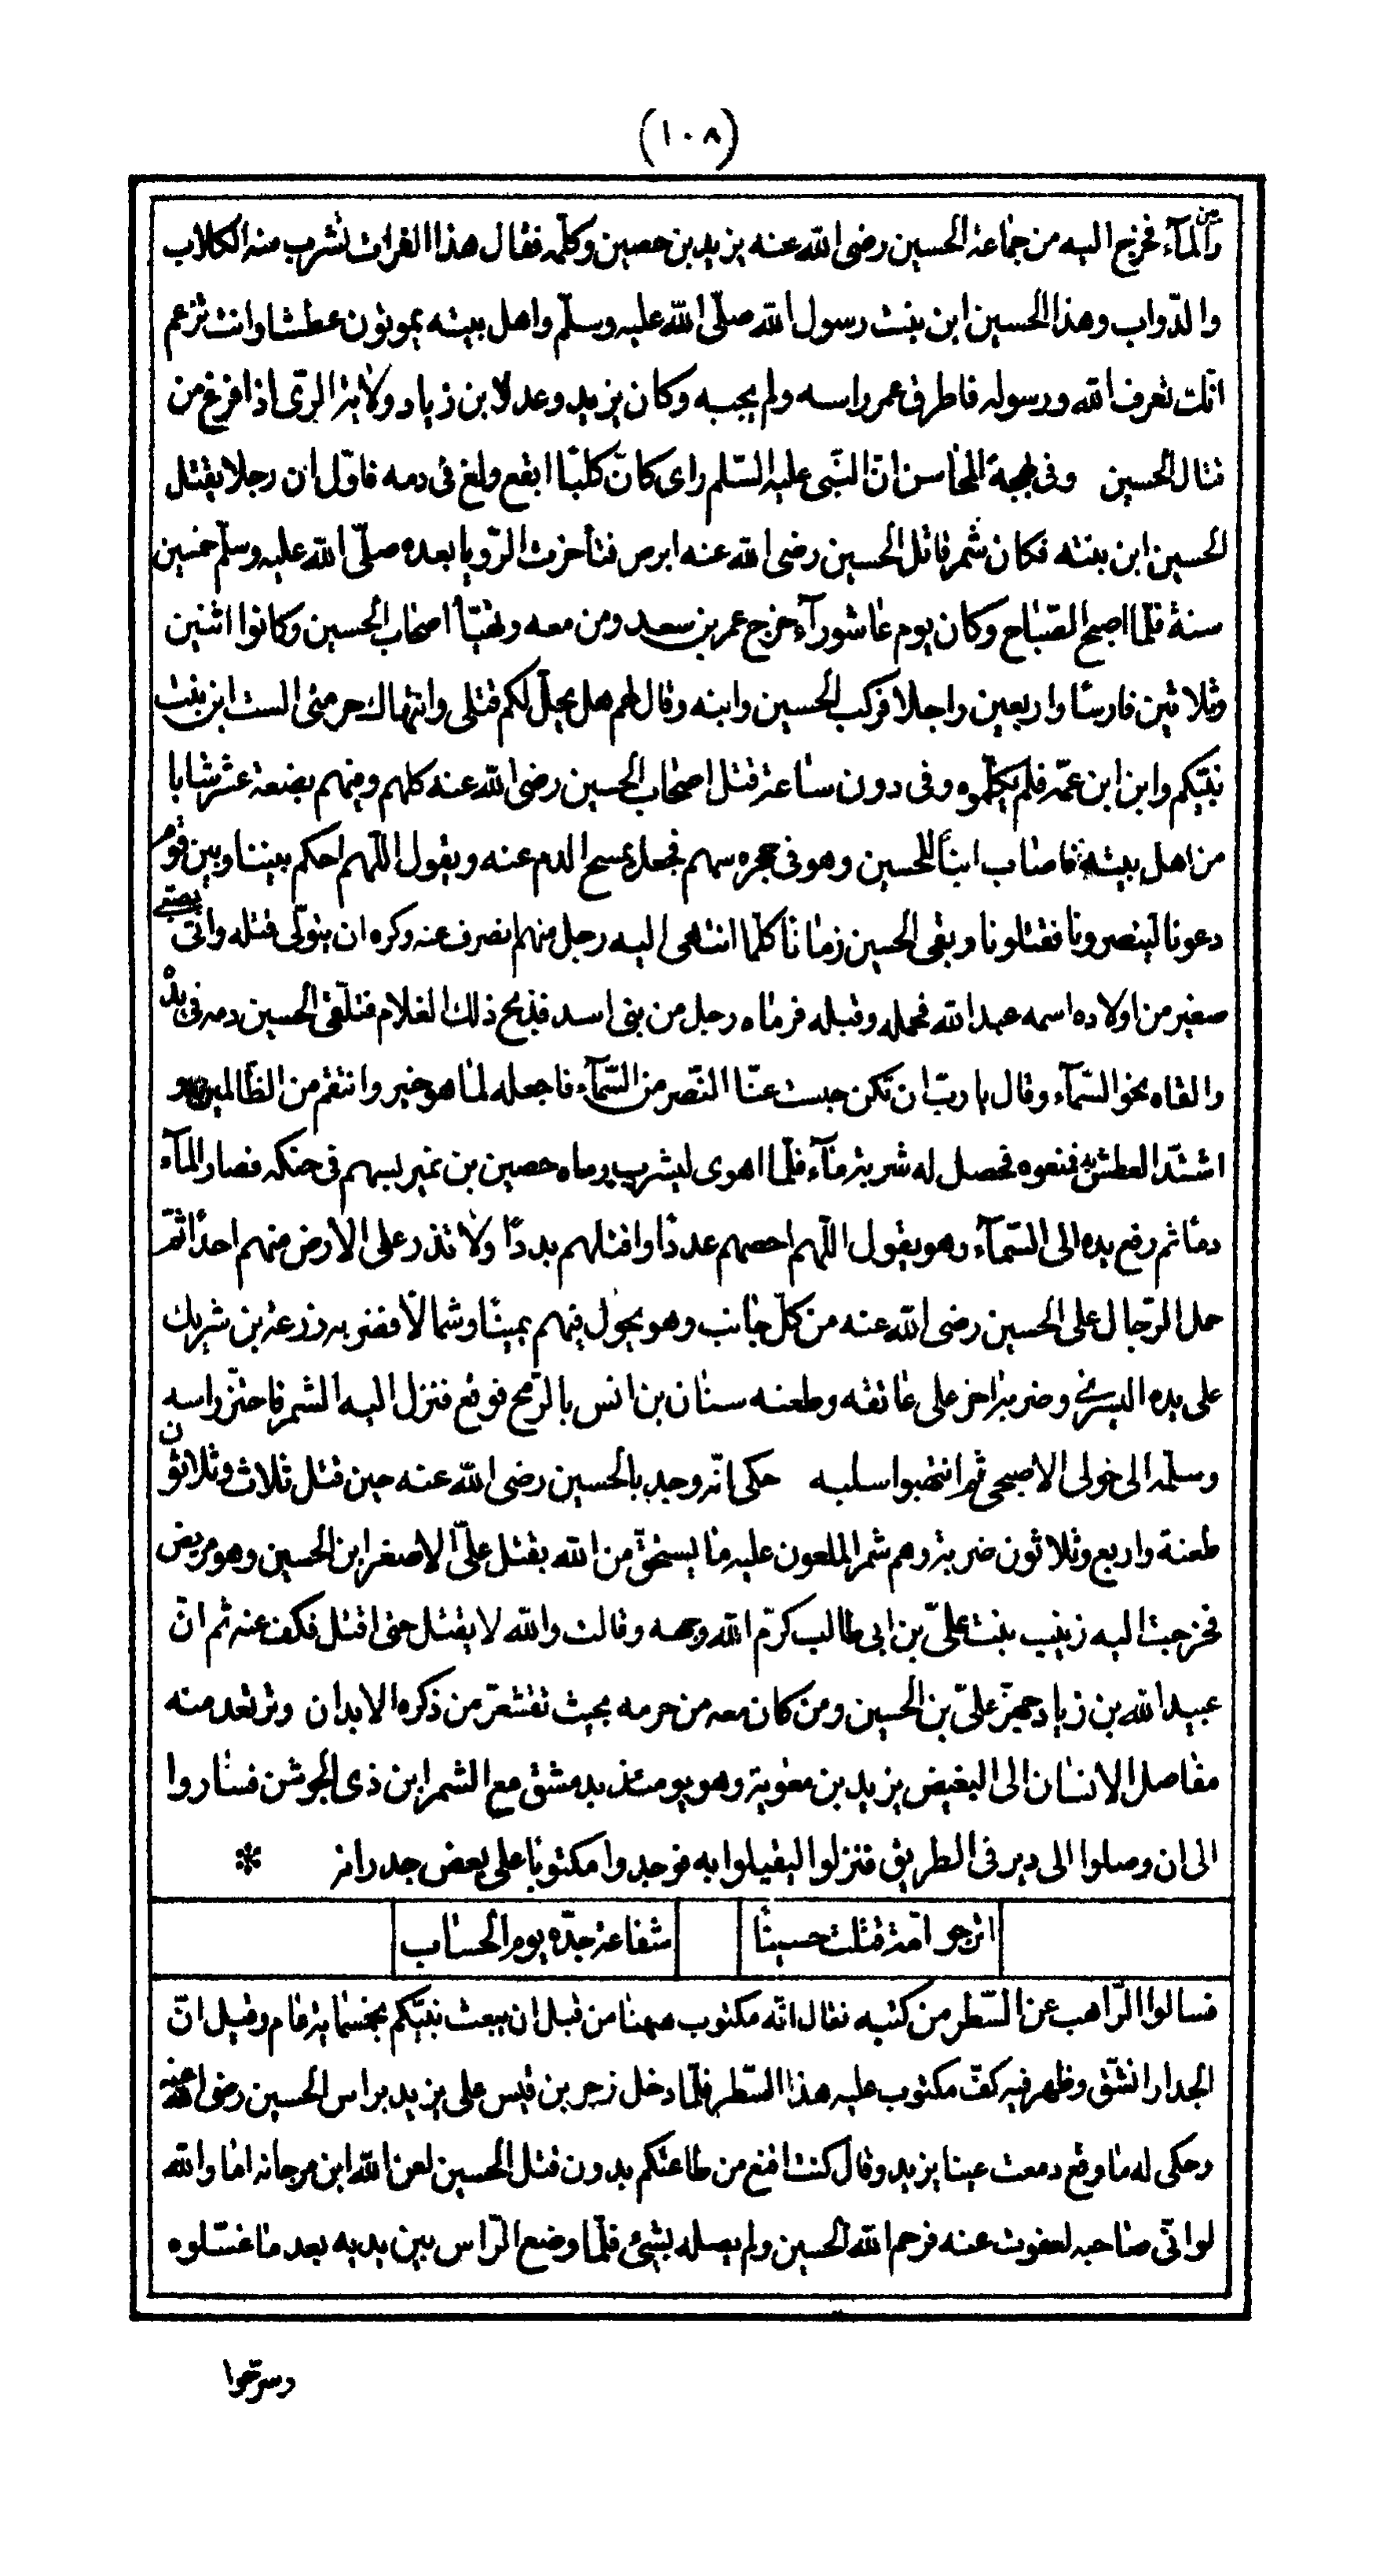 (١٠٨)
وبين المآء فخرج اليه من جماعة الحسين رضى الله عنه يزيد بن حصين وكلّمه فقال هذا الفرات تشرب منه الكلاب
والدّواب وهذا الحسين ابن بنت رسول الله صلّى الله عليه وسلّم واهل بيته يموتون عطشا وانت تزعم
انّك تعرف الله ورسوله فاطرق عمر راسه ولم يجبه وكان يزيد وعد لابن زياد ولاية الرّى اذا فرغ من
قتال الحسين وفى بهجة المحاسن انّ النبّى عليه السّلم راى كانّ كلبًا ابقع ولغ فى دمه فاوّل ان رجلا يقتل
الحسين ابن بنته فكان شمر قاتل الحسين رضى الله عنه ابرص فتأخرت الرّويا بعده صلّى الله عليه وسلّم خمسين
سنة فلمّا اصبح الصّباح وكان يوم عاشورآء خرج عمر بن سعد ومن معه وتهيّأ اصحاب الحسين وكانوا اثنين
وثلاثين فارسًا واربعين راجلا فركب الحسين وابنه وقال لهم هل يحلّ لكم قتلى وانتهاك حرمتى الست ابن بنت
نبيّكم وابن ابن عمّه فلم يكلّموه وفى دون ساعة قتل اصحاب الحسين رضى الله عنه كلهم ومنهم بضعة عشر شابا
من اهل بيته فاصاب ابنًا للحسين وهو فى حجره سهم فجعل يمسح الدم عنه ويقول اللّهم احكم بيننا وبين قوم
دعونا لينصرونا فقتلونا وبقى الحسين زمانًا كلّما انتهى اليه رجل منهم انصرف عنه وكره ان يتولّى قتله واتى بصبّى
صغير من اولاده اسمه عبد الله فحمله وقبله فرماه رجل من بنى اسد فذبح ذلك الغلام فتلّقى الحسين دمه فى يده
والقاه نحو السّمآء وقال يا ربّ ان تكن حبست عنّا النّصر من السّمآء فاجعله لما هو خير وانتقم من الظالمين و
اشتدّ العطش به فمنعوه فحصل له شربة مآء فلمّا اهوى ليشرب رماه حصين بن نمير بسهم فى حنكه فصار المآء
دمًا ثم رفع يده الى السّمآء وهو يقول اللّهم احصهم عددًا واقتلهم بددًا ولا تذر على الارض منهم احدًا ثمّ
حمل الرّجال على الحسين رضى الله عنه من كلّ جانب وهو يجول فيهم يمينًا وشمالًا فضربه زرعة بن شريك
على يده اليسرى وضربه اخر على عاتقه وطعنه سنان بن انس بالرّمح فوقع فنزل اليه الشمر فاحتزّ راسه
وسلّمه الى خولى الاصبحى ثم انتهبوا سلبه حكى انّه وجد بالحسين رضى الله عنه حين قتل ثلاث وثلاثون
طعنة واربع وثلاثون ضربة وهم شمر الملعون عليه ما يستحقّ من الله بقتل علىّ الاصغر ابن الحسين وهو مريض
فخرجت اليه زينب بنت علىّ بن ابى طالب كرّم الله وجهه وقالت والله لا يقتل حتى اقتل فكف عنه ثم انّ
عبيد الله بن زياد جهّز علىّ بن الحسين ومن كان معه من حرمه بحيث تقشعرّ من ذكره الابدان وترتعد منه
مفاصل الانسان الى البغيض يزيد بن معوية وهو يومئذ بدمشق مع الشمر ابن ذى الجوشن فساروا
الى ان وصلوا الى دير فى الطريق فنزلوا ليقيلوا به فوجدوا مكتوبًا على بعض جدرانه *
اترجو امّة قتلت حسينًا شفاعة جدّه يوم الحساب
فسالوا الرّاهب عن السّطر من كتبه فقال انّه مكتوب ههنا من قبل ان يبعث نبيّكم بخمسماية عام وقيل انّ
الجدار انشقّ وظهر فيه كفّ مكتوب عليه هذا السّطر فلمّا دخل زجر بن قيس على يزيد براس الحسين رضى الله عنه
وحكى له ما وقع دمعت عينا يزيد وقال كنت اقنع من طاعتكم بدون قتل الحسين لعن الله ابن مرجانه اما والله
لو انّى صاحبه لعفوت عنه فرحم الله الحسين ولم يصله بشئ فلمّا وضع الرّاس بين يديه بعد ما غسّلوه
وسرّحوا